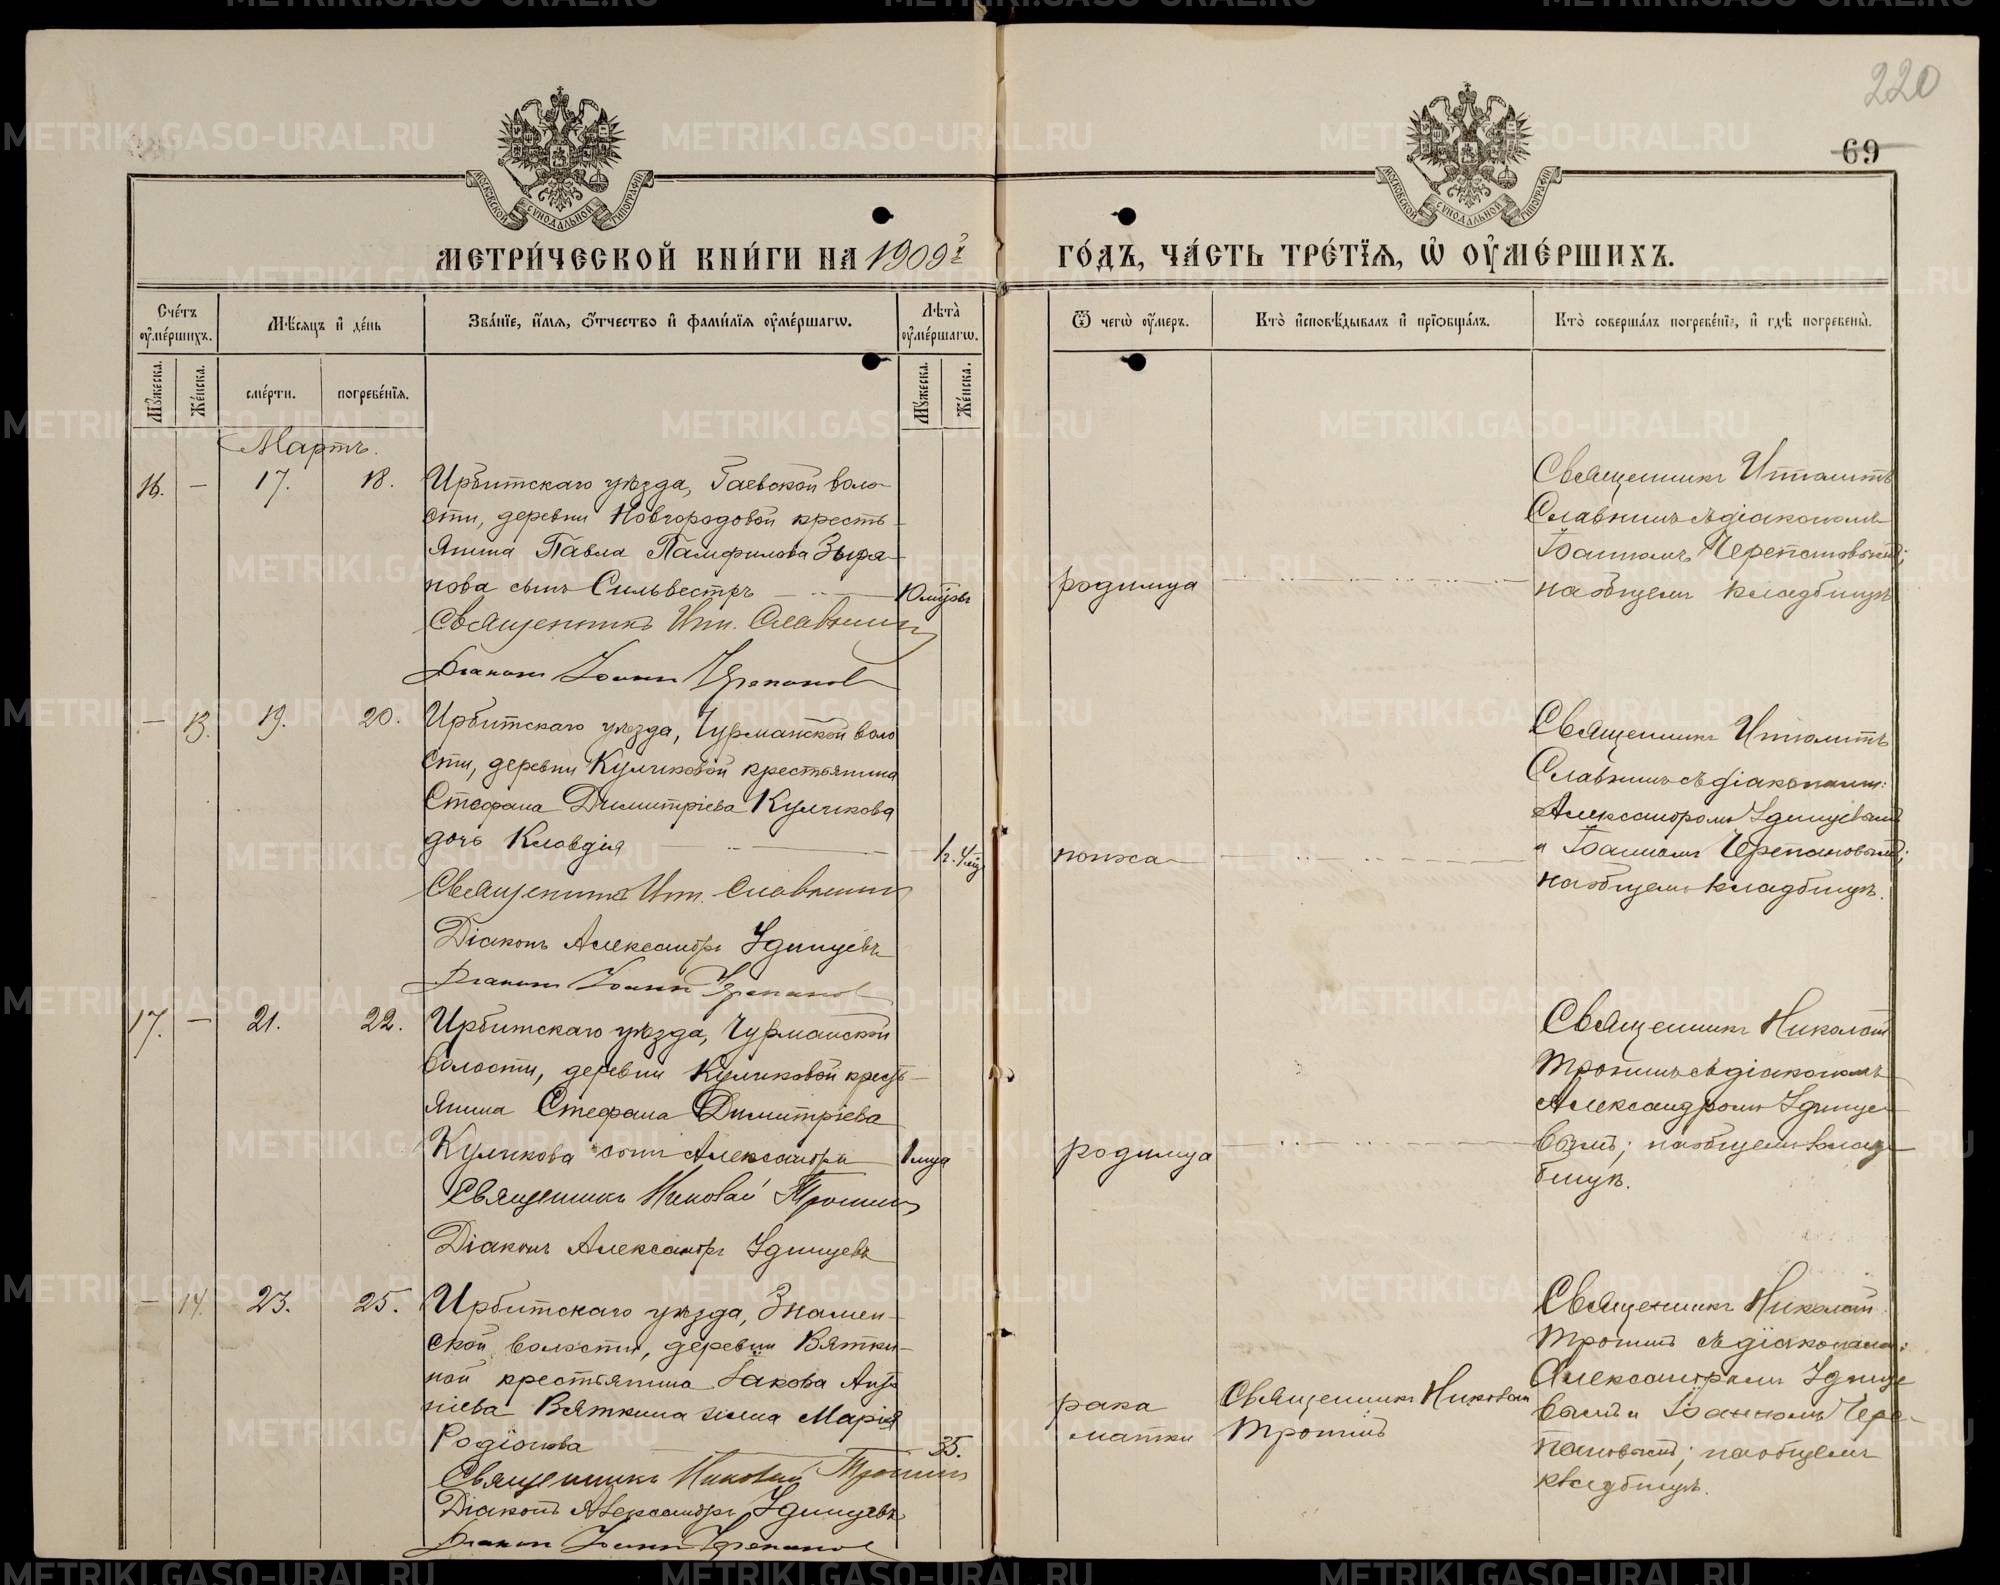 220
69
МОСКОВСКОЙ СѴНОДАЛЬНОЙ ТИПОГРАФІИ
МОСКОВСКОЙ СѴНОДАЛЬНОЙ ТИПОГРАФІИ
МЕТРИ́ЧЕСКОЙ КНИ́ГИ НА 1909 г.
ГО́ДЪ, ЧА́СТЬ ТРЕ́ТЇѦ, Ѡ҆ ОУ҆МЕ́РШИХЪ.
Сче́тъ оу҆ме́ршихъ.
Мѣ́сѧцъ и҆ де́нь
Зва́нїе, и҆́мѧ, ѻ҆́тчество и҆ фами́лїѧ оу҆ме́ршагѡ.
Лѣ́та оу҆ме́ршагѡ.
Ѿ чегѡ̀ оу҆́меръ.
Кто̀ и҆сповѣ́дывалъ и҆ прїѡбща́лъ.
Кто̀ соверша́лъ погребе́нїе, и҆ гдѣ̀ погребены̀.
Мꙋ́жеска.
Же́нска.
сме́рти.
погребе́нїѧ.
Мꙋ́жеска.
Же́нска.
Мартъ.
16. — 17. 18.
Ирбитскаго уѣзда, Гаевской воло-
сти, деревни Новгородовой кресть-
янина Павла Памфилова Зыря-
нова сынъ Сильвестръ
Священникъ Ипп. Славнин
Діаконъ Іоаннъ Черепановъ
родимца
Священникъ Ипполитъ
Славнинъ съ діакономъ
Іоанномъ Черепановымъ;
на общемъ кладбищѣ
— 13. 19. 20.
Ирбитскаго уѣзда, Чурманской воло
сти, деревни Куликовой крестьянина
Стефана Димитріева Куликова
дочь Клавдія
1 г. 4 мѣс
Священникъ Ипп. Славнин
Діаконъ Александръ Удинцевъ
Діаконъ Іоаннъ Черепановъ
поноса
Священникъ Ипполитъ
Славнинъ съ діаконами:
Александромъ Удинцевымъ
и Іоанномъ Черепановымъ;
на общемъ кладбищѣ.
17. — 21. 22.
Ирбитскаго уѣзда, Чурманской
волости, деревни Куликовой кресть-
янина Стефана Димитріева
Куликова сынъ Александръ
1 мца
Священникъ Николай Тронин
Діаконъ Александръ Удинцевъ
родимца
Священникъ Николай
Тронинъ съ діакономъ
Александромъ Удинце-
вымъ; на общемъ клад-
бищѣ.
— 14. 23. 25.
Ирбитскаго уѣзда, Знамен-
ской волости, деревни Вятки-
ной крестьянина Іакова
Вяткина жена Марія
Родіонова
35.
Священникъ Николай Тронин
Діаконъ Александръ Удинцевъ
Діаконъ Іоаннъ Черепановъ
рака
матки
Священникъ Николай
Тронинъ
Священникъ Николай
Тронинъ съ діаконами:
Александромъ Удинце
вымъ и Іоанномъ Чере-
пановымъ; на общемъ
кладбищѣ.
METRIKI.GASO-URAL.RU